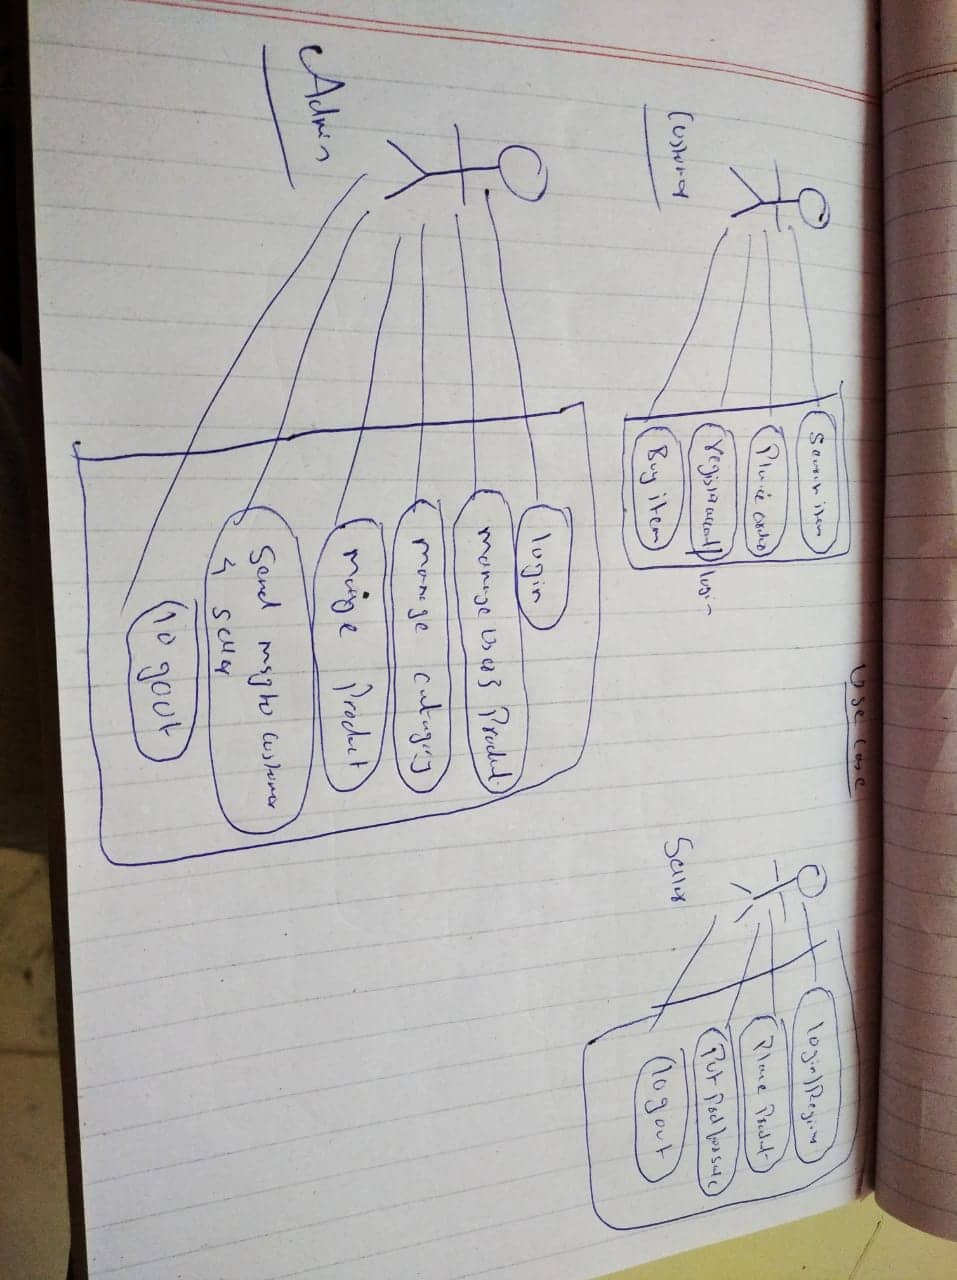 Use case
Customer
Search item
Place order
register accout / login
Buy item
Seller
login/Register
Place Product
Put Pod for sale
logout
Admin
login
manage Users Product
manage category
Manage Product
Send msg to customer
& seller
logout